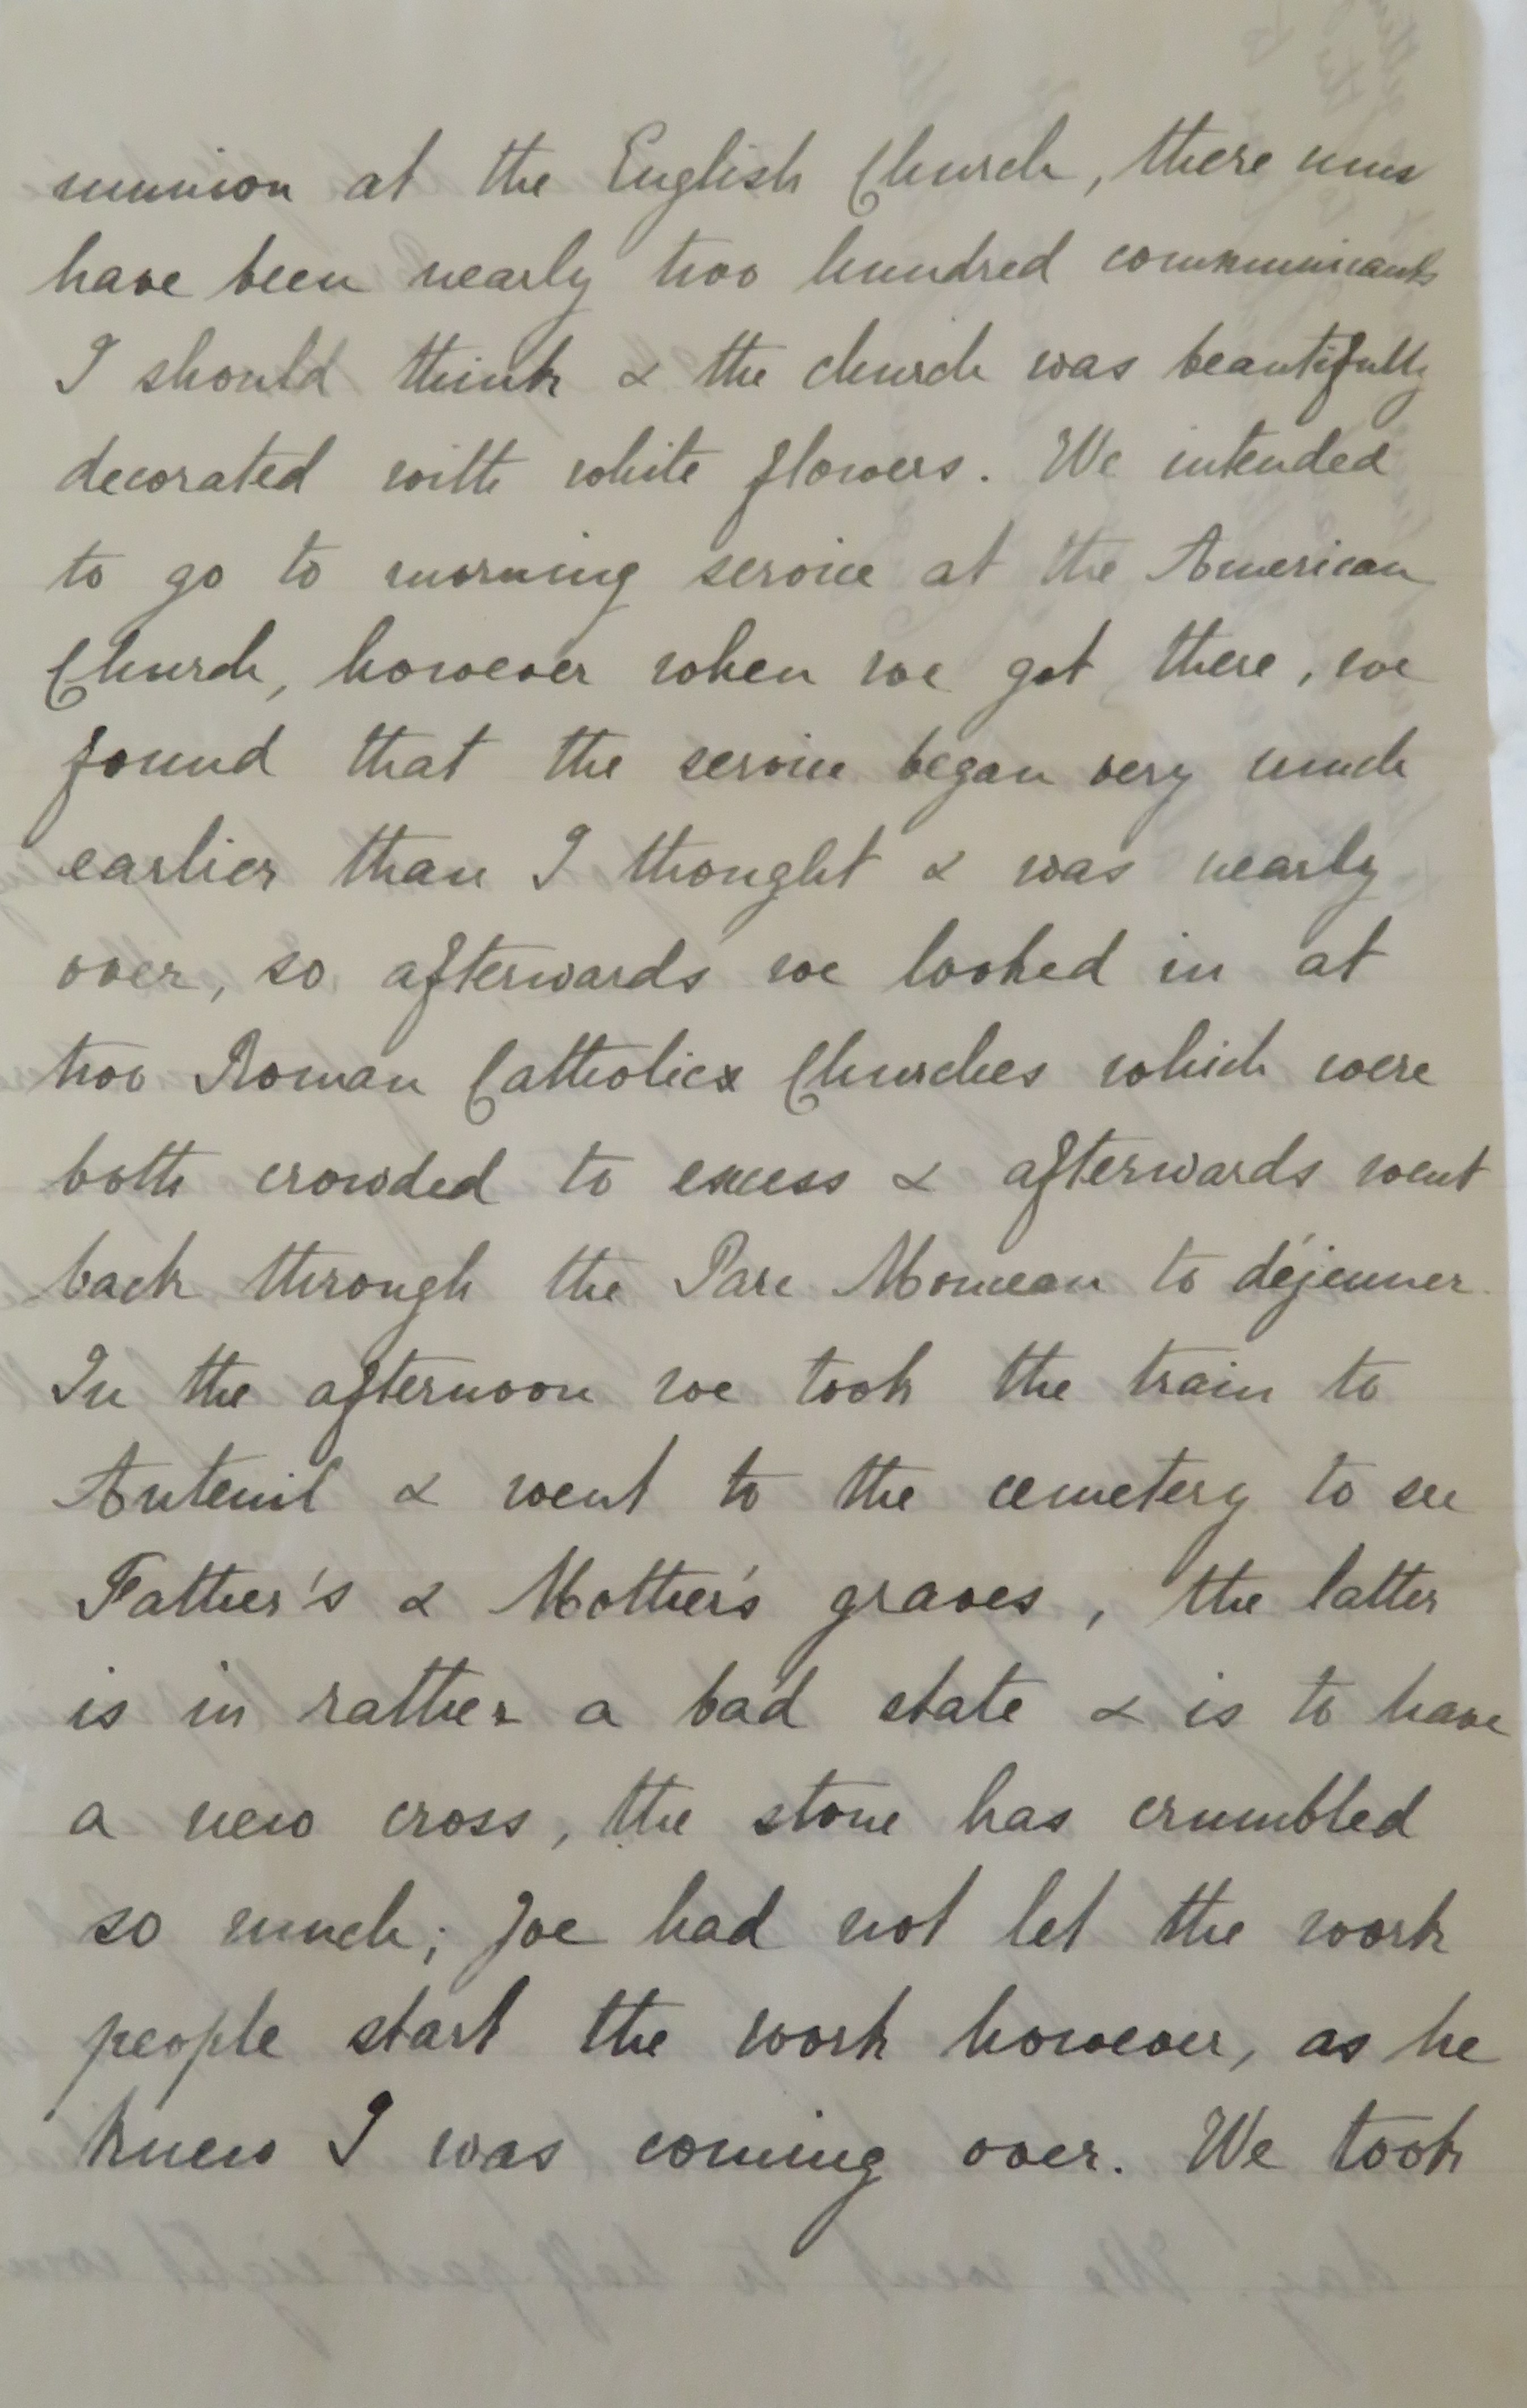 munion at the English Church, there mus
have been nearly two hundred communicants
I should think & the church was beautifully
decorated with white flowers. We intended
to go to morning service at the American
Church, however when we got there, we
found that the service began very much
earlier than I thought & was nearly
over, so afterwards we looked in at
two Roman Catholics Churches which were
both crowded to excess & afterwards went
back through the Parc Monceau to déjeuner.
In the afternoon we took the train to
Auteuil & went to the cemetery to see
Father's & Mother's graves, the latter
is in rather a bad state & is to have
a new cross, the stone has crumbled
so much; Joe had not let the work
people start the work however, as he
knew I was coming over. We took